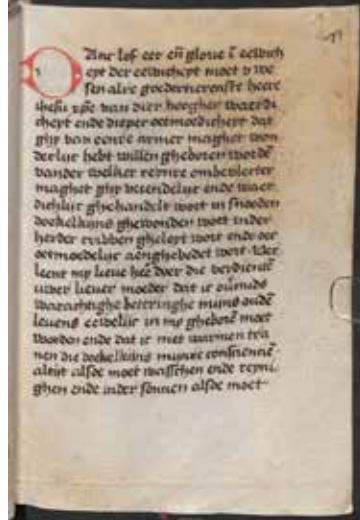 Anc lof eer eñ glorie ī eewich
eyt der eewicheyt moet v we
sen alre goedertierenste heere
ihesu xpē van dier hoegher waerdi
cheyt ende dieper oetmoedicheyt dat
ghy van eenre armer maghet won
derlijc hebt willen gheboren wordē
vander welker reynre ombevlecter
maghet ghy eerendelijc ende
dichlijc ghehandelt wort in snooden
doekelkijns ghewonden wort inder
herder cribben gheleyt wort ende oer
oetmoedelijc aenghebedet wort Ver
leent my lieve heē doer die verdiente
uwer liever moeder dat ic
warachtighe beteringhe mijns oudē
levens eewelijc in my gheborē moet
worden ende dat ic met warmen tra
nen die doekelkijns mijnre consciencie
altijt alsoe moet wasschen ende reyni
ghen ende inder sonnen alsoe moet